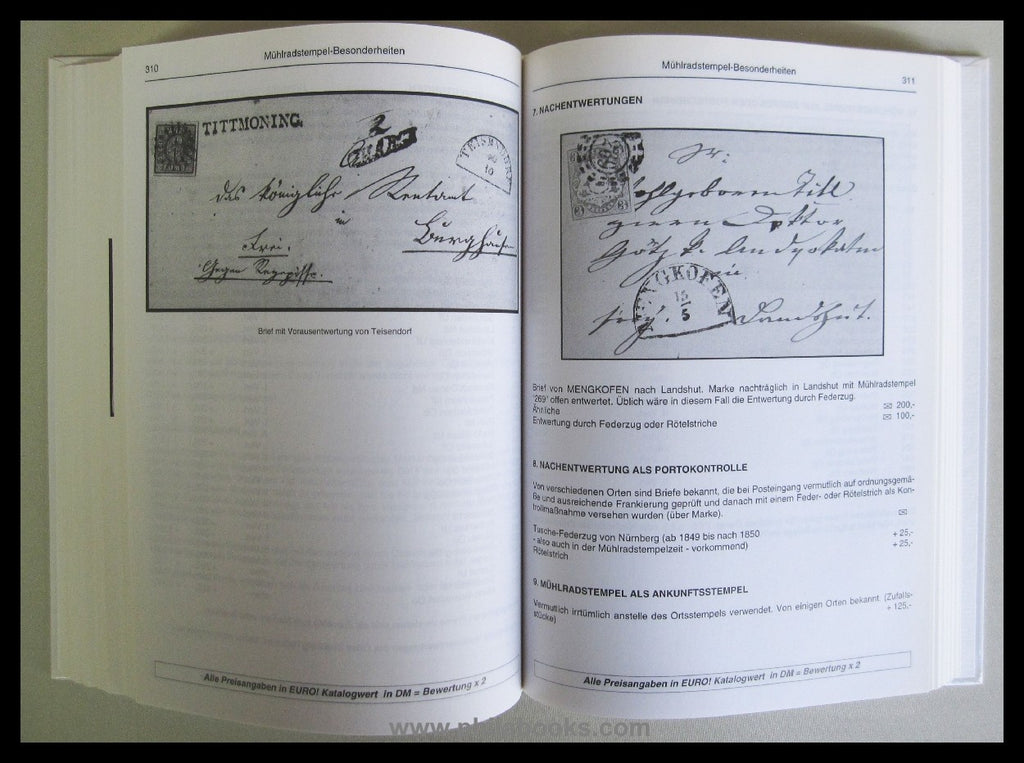 310
Mühlradstempel-Besonderheiten
TITTMONING.
2
das königliche Rentamt
in
Burghausen
Frei.
Brief mit Vorausentwertung von Teisendorf
Alle Preisangaben in EURO! Katalogwert in DM = Bewertung x 2
Mühlradstempel-Besonderheiten
311
7. NACHENTWERTUNGEN
MENGKOFEN
15
5
Landshut.
Brief von MENGKOFEN nach Landshut. Marke nachträglich in Landshut mit Mühlradstempel
'269' offen entwertet. Üblich wäre in diesem Fall die Entwertung durch Federzug.
Ähnliche ✉ 200,-
Entwertung durch Federzug oder Rötelstriche ✉ 100,-
8. NACHENTWERTUNG ALS PORTOKONTROLLE
Von verschiedenen Orten sind Briefe bekannt, die bei Posteingang vermutlich auf ordnungsgemä-
ße und ausreichende Frankierung geprüft und danach mit einem Feder- oder Rötelstrich als Kon-
trollmaßnahme versehen wurden (über Marke). ✉
Tusche-Federzug von Nürnberg (ab 1849 bis nach 1850
- also auch in der Mühlradstempelzeit - vorkommend) + 25,-
Rötelstrich + 25,-
9. MÜHLRADSTEMPEL ALS ANKUNFTSSTEMPEL
Vermutlich irrtümlich anstelle des Ortsstempels verwendet. Von einigen Orten bekannt. (Zufalls-
stücke) + 125,-
Alle Preisangaben in EURO! Katalogwert in DM = Bewertung x 2
www.philabooks.com